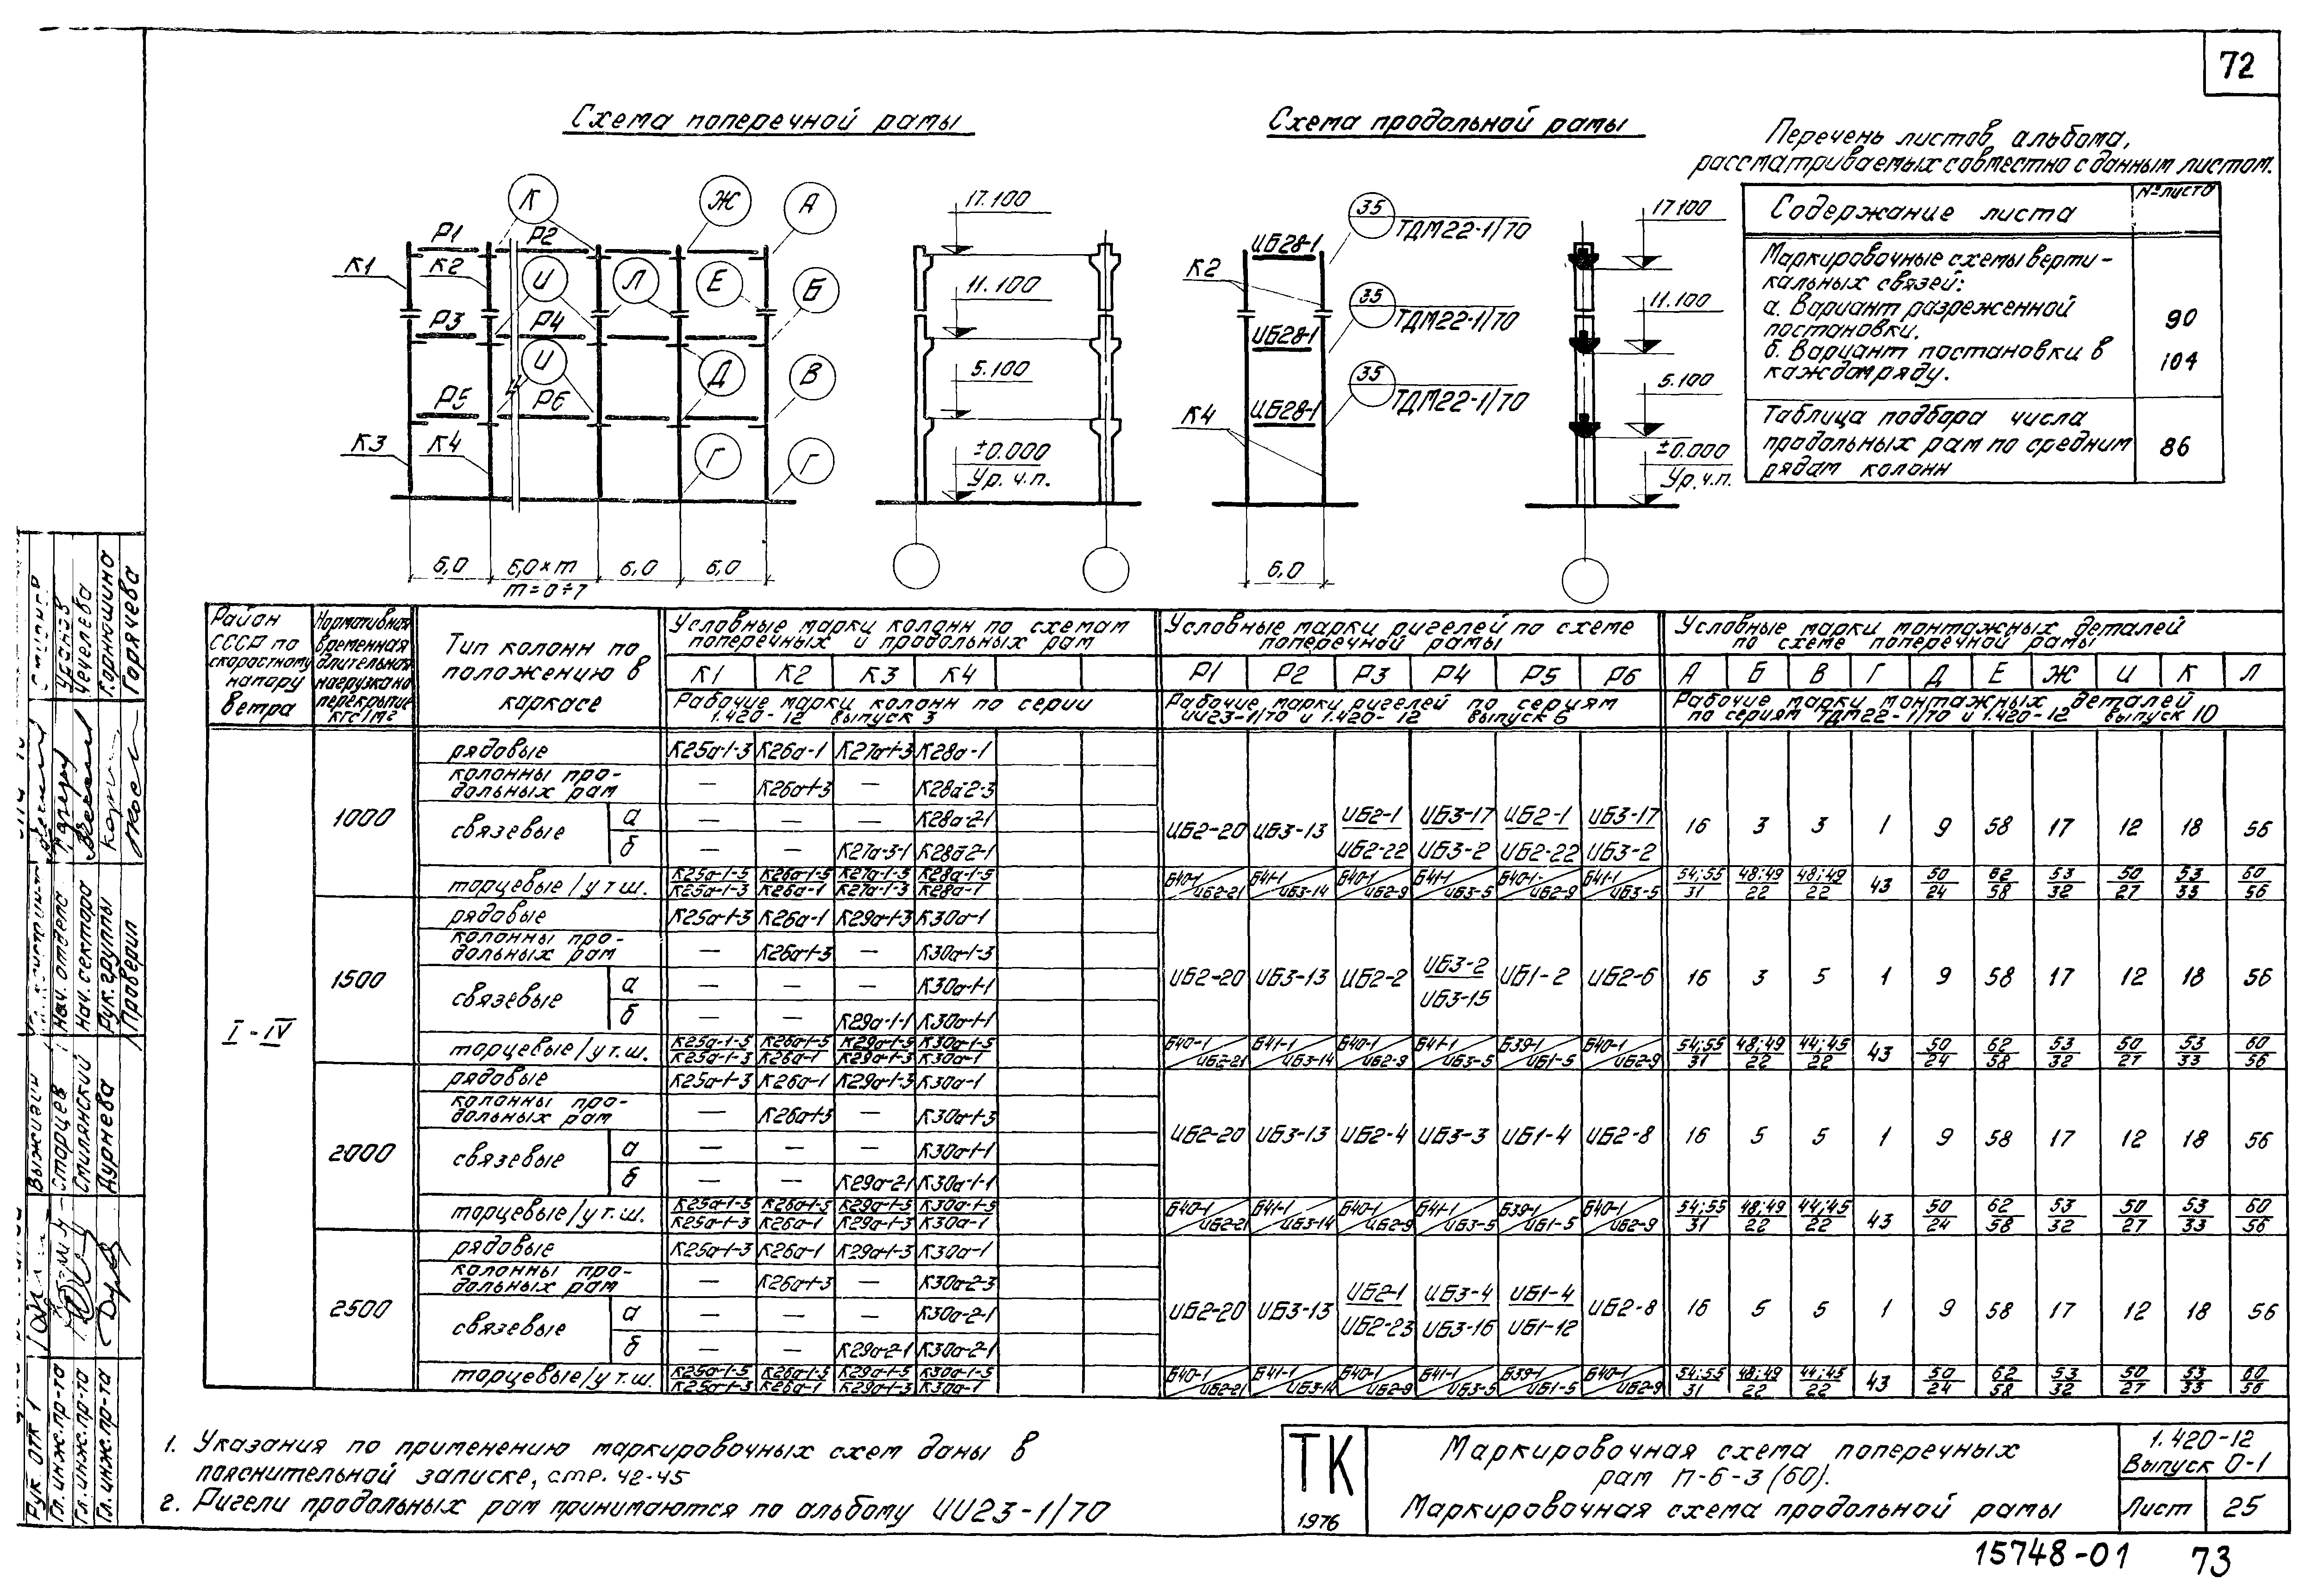 72
Схема поперечной рамы
Схема продольной рамы
Перечень листов альбома,
рассматриваемых совместно с данным листом.
Содержание листа
№ листа
Маркировочные схемы верти-
кальных связей:
а. Вариант разреженной
постановки.
90
б. Вариант постановки в
каждом ряду.
104
Таблица подбора числа
продольных рам по средним
рядам колонн
86
К Ж А
Р1 Р2
К1 К2 И Л Е Б
Р3 Р4
И Д В
Р5 Р6
К3 К4 Г Г
6,0 6,0×m 6,0 6,0
m=0÷7
17.100
11.100
5.100
±0.000
Ур. ч.п.
ИБ28-1 35 ТДМ22-1/70
К2
ИБ28-1 35 ТДМ22-1/70
ИБ28-1 35 ТДМ22-1/70
К4
6,0
17.100
11.100
5.100
±0.000
Ур. ч.п.
Район СССР по скоростному напору ветра
Нормативная временная длительная нагрузка на перекрытие кгс/м2
Тип колонн по положению в каркасе
Условные марки колонн по схемам поперечных и продольных рам
К1 К2 К3 К4
Рабочие марки колонн по серии 1.420-12 выпуск 3
Условные марки ригелей по схеме поперечной рамы
Р1 Р2 Р3 Р4 Р5 Р6
Рабочие марки ригелей по сериям ИИ23-1/70 и 1.420-12 выпуск 6
Условные марки монтажных деталей по схеме поперечной рамы
А Б В Г Д Е Ж И К Л
Рабочие марки монтажных деталей по сериям ТДМ22-1/70 и 1.420-12 выпуск 10
I - IV
1000
рядовые К25а-1-3 К26а-1 К27а-1-3 К28а-1
колонны продольных рам — К26а-1-3 — К28а-2-3
связевые а — — — К28а-2-1
б — — К27а-3-1 К28а-2-1
ИБ2-20 ИБ3-13 ИБ2-1/ИБ2-22 ИБ3-17/ИБ3-2 ИБ2-1/ИБ2-22 ИБ3-17/ИБ3-2 16 3 3 1 9 58 17 12 18 56
торцевые/у т.ш. К25а-1-5/К25а-1-3 К26а-1-5/К26а-1 К27а-1-5/К27а-1-3 К28а-1-5/К28а-1 Б40-1/ИБ2-21 Б41-1/ИБ3-14 Б40-1/ИБ2-9 Б41-1/ИБ3-5 Б40-1/ИБ2-9 Б41-1/ИБ3-5 54;55/31 48;49/22 48;49/22 43 50/24 62/58 53/32 50/27 53/33 60/56
1500
рядовые К25а-1-3 К26а-1 К29а-1-3 К30а-1
колонны продольных рам — К26а-1-3 — К30а-1-3
связевые а — — — К30а-1-1
б — — К29а-1-1 К30а-1-1
ИБ2-20 ИБ3-13 ИБ2-2 ИБ3-2/ИБ3-15 ИБ1-2 ИБ2-6 16 3 5 1 9 58 17 12 18 56
торцевые/у т.ш. К25а-1-5/К25а-1-3 К26а-1-5/К26а-1 К29а-1-5/К29а-1-3 К30а-1-5/К30а-1 Б40-1/ИБ2-21 Б41-1/ИБ3-14 Б40-1/ИБ2-9 Б41-1/ИБ3-5 Б39-1/ИБ1-5 Б40-1/ИБ2-9 54;55/31 48;49/22 44;45/22 43 50/24 62/58 53/32 50/27 53/33 60/56
2000
рядовые К25а-1-3 К26а-1 К29а-1-3 К30а-1
колонны продольных рам — К26а-1-3 — К30а-1-3
связевые а — — — К30а-1-1
б — — К29а-2-1 К30а-1-1
ИБ2-20 ИБ3-13 ИБ2-4 ИБ3-3 ИБ1-4 ИБ2-8 16 5 5 1 9 58 17 12 18 56
торцевые/у т.ш. К25а-1-5/К25а-1-3 К26а-1-5/К26а-1 К29а-1-5/К29а-1-3 К30а-1-5/К30а-1 Б40-1/ИБ2-21 Б41-1/ИБ3-14 Б40-1/ИБ2-9 Б41-1/ИБ3-5 Б39-1/ИБ1-5 Б40-1/ИБ2-9 54;55/31 48;49/22 44;45/22 43 50/24 62/58 53/32 50/27 53/33 60/56
2500
рядовые К25а-1-3 К26а-1 К29а-1-3 К30а-1
колонны продольных рам — К26а-1-3 — К30а-2-3
связевые а — — — К30а-2-1
б — — К29а-2-1 К30а-2-1
ИБ2-20 ИБ3-13 ИБ2-1/ИБ2-23 ИБ3-4/ИБ3-16 ИБ1-4/ИБ1-12 ИБ2-8 16 5 5 1 9 58 17 12 18 56
торцевые/у т.ш. К25а-1-5/К25а-1-3 К26а-1-5/К26а-1 К29а-1-5/К29а-1-3 К30а-1-5/К30а-1 Б40-1/ИБ2-21 Б41-1/ИБ3-14 Б40-1/ИБ2-9 Б41-1/ИБ3-5 Б39-1/ИБ1-5 Б40-1/ИБ2-9 54;55/31 48;49/22 44;45/22 43 50/24 62/58 53/32 50/27 53/33 60/56
1. Указания по применению маркировочных схем даны в
пояснительной записке, стр. 42-45
2. Ригели продольных рам принимаются по альбому ИИ23-1/70
ТК
1976
Маркировочная схема поперечных
рам П-6-3 (60).
Маркировочная схема продольной рамы
1.420-12
Выпуск 0-1
Лист 25
15748-01 73
Рук. ОТК 1 Выжигин
Гл. инж. пр-та Старцев Нач. отдела
Гл. инж. пр-та Стилянский Нач. сектора Чечелева
Гл. инж. пр-та Дурнева Рук. группы Горнюшина
Проверил Горячева